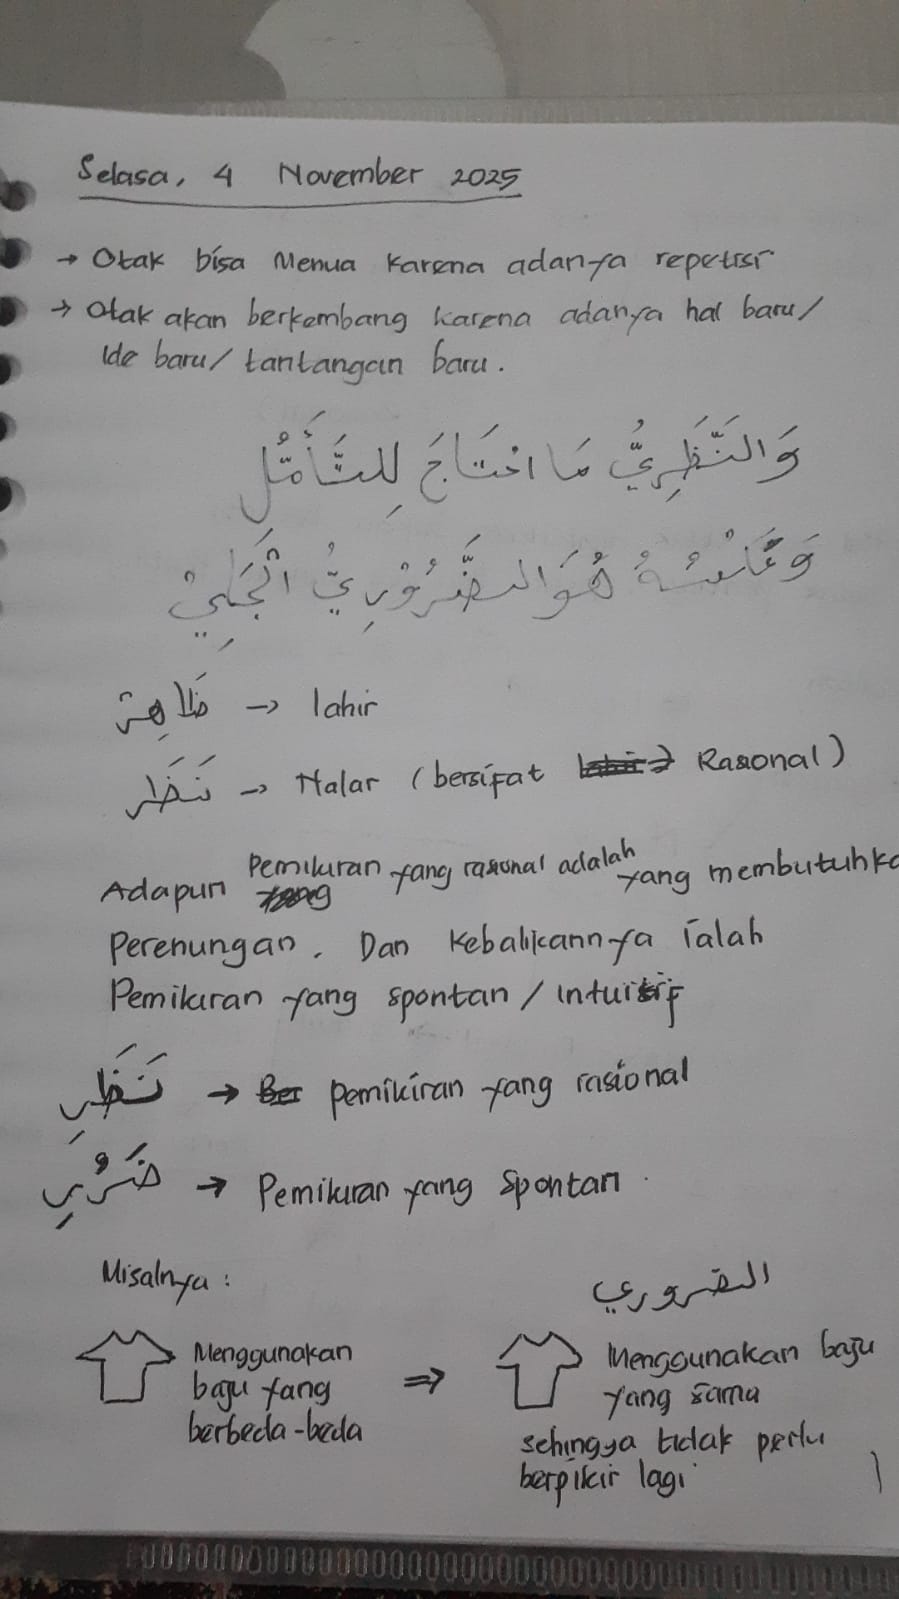 Selasa, 4 November 2025
→ Otak bisa Menua karena adanya repetisi
→ Otak akan berkembang karena adanya hal baru/
Ide baru/ tantangan baru.
وَالنَّظَرِيُّ مَا احْتَاجَ لِلتَّأَمُّلِ
وَعَكْسُهُ هُوَ الضَّرُوْرِيُّ الْجَلِيْ
ظَاهِر → lahir
نَظَر → Nalar (bersifat Rasional)
Adapun Pemikiran yang rasional adalah yang membutuhka
Perenungan. Dan Kebalikannya ialah
Pemikiran yang spontan / intuitif
نَظَرِي → pemikiran yang rasional
ضَرُوْرِي → Pemikiran yang Spontan.
Misalnya:
الضروري
Menggunakan
baju yang
berbeda-beda
⇒
Menggunakan baju
yang sama
sehingga tidak perlu
berpikir lagi